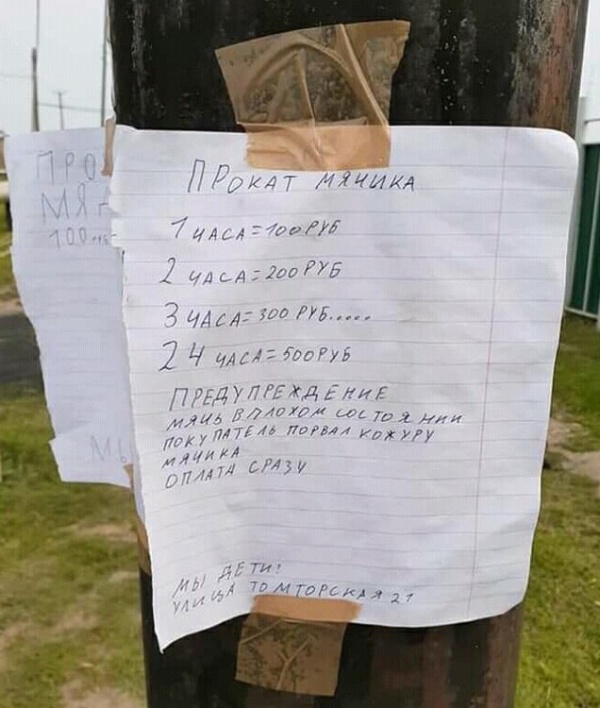 ПРО
МЯ
100
МЫ
ПРОКАТ МЯЧИКА
1 ЧАСА=100РУБ
2 ЧАСА=200РУБ
3 ЧАСА=300 РУБ.....
24 ЧАСА=500РУБ
ПРЕДУПРЕЖДЕНИЕ
МЯЧЬ В ПЛОХОМ СОСТОЯНИИ
ПОКУПАТЕЛЬ ПОРВАЛ КОЖУРУ
МЯЧИКА
ОПЛАТА СРАЗУ
МЫ ДЕТИ!
УЛИЦА ТОМТОРСКАЯ 21